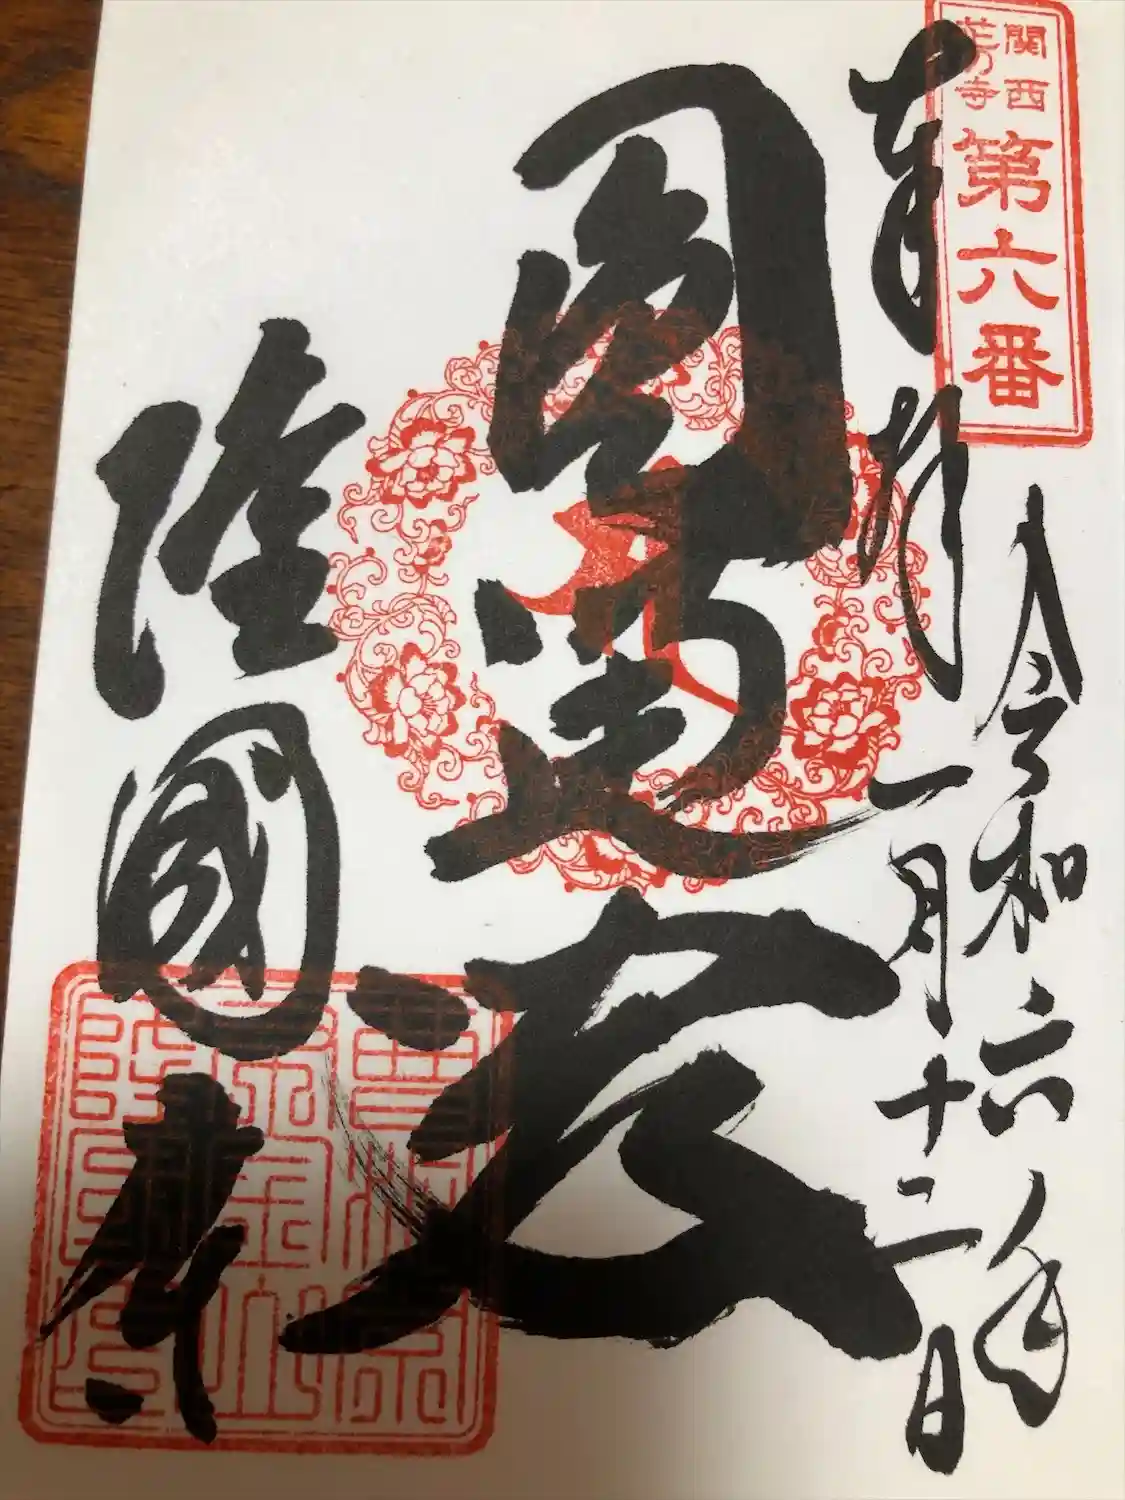 関西
花乃寺
第六番
奉拝
令和六年
一月十二日
圓通
隆國寺